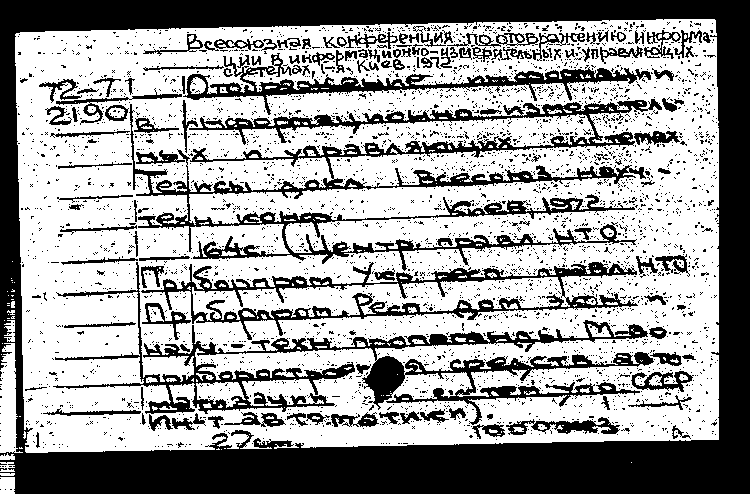 Всесоюзная конференция по отображению информа-
ции в информационно-измерительных и управляющих
системах, 1-я. Киев. 1972
72-71 Отображение информации
2190 в информационно-измеритель-
ных и управляющих системах
Тезисы докл. I Всесоюз. науч.-
техн. конф. Киев, 1972
164с. (Центр. правл. НТО
Приборпром. Укр. респ. правл. НТО
Приборпром. Респ. дом экон. и
науч.-техн. пропаганды. М-во
приборостроения, средств авто-
матизации и систем упр. СССР
Ин-т автоматики).